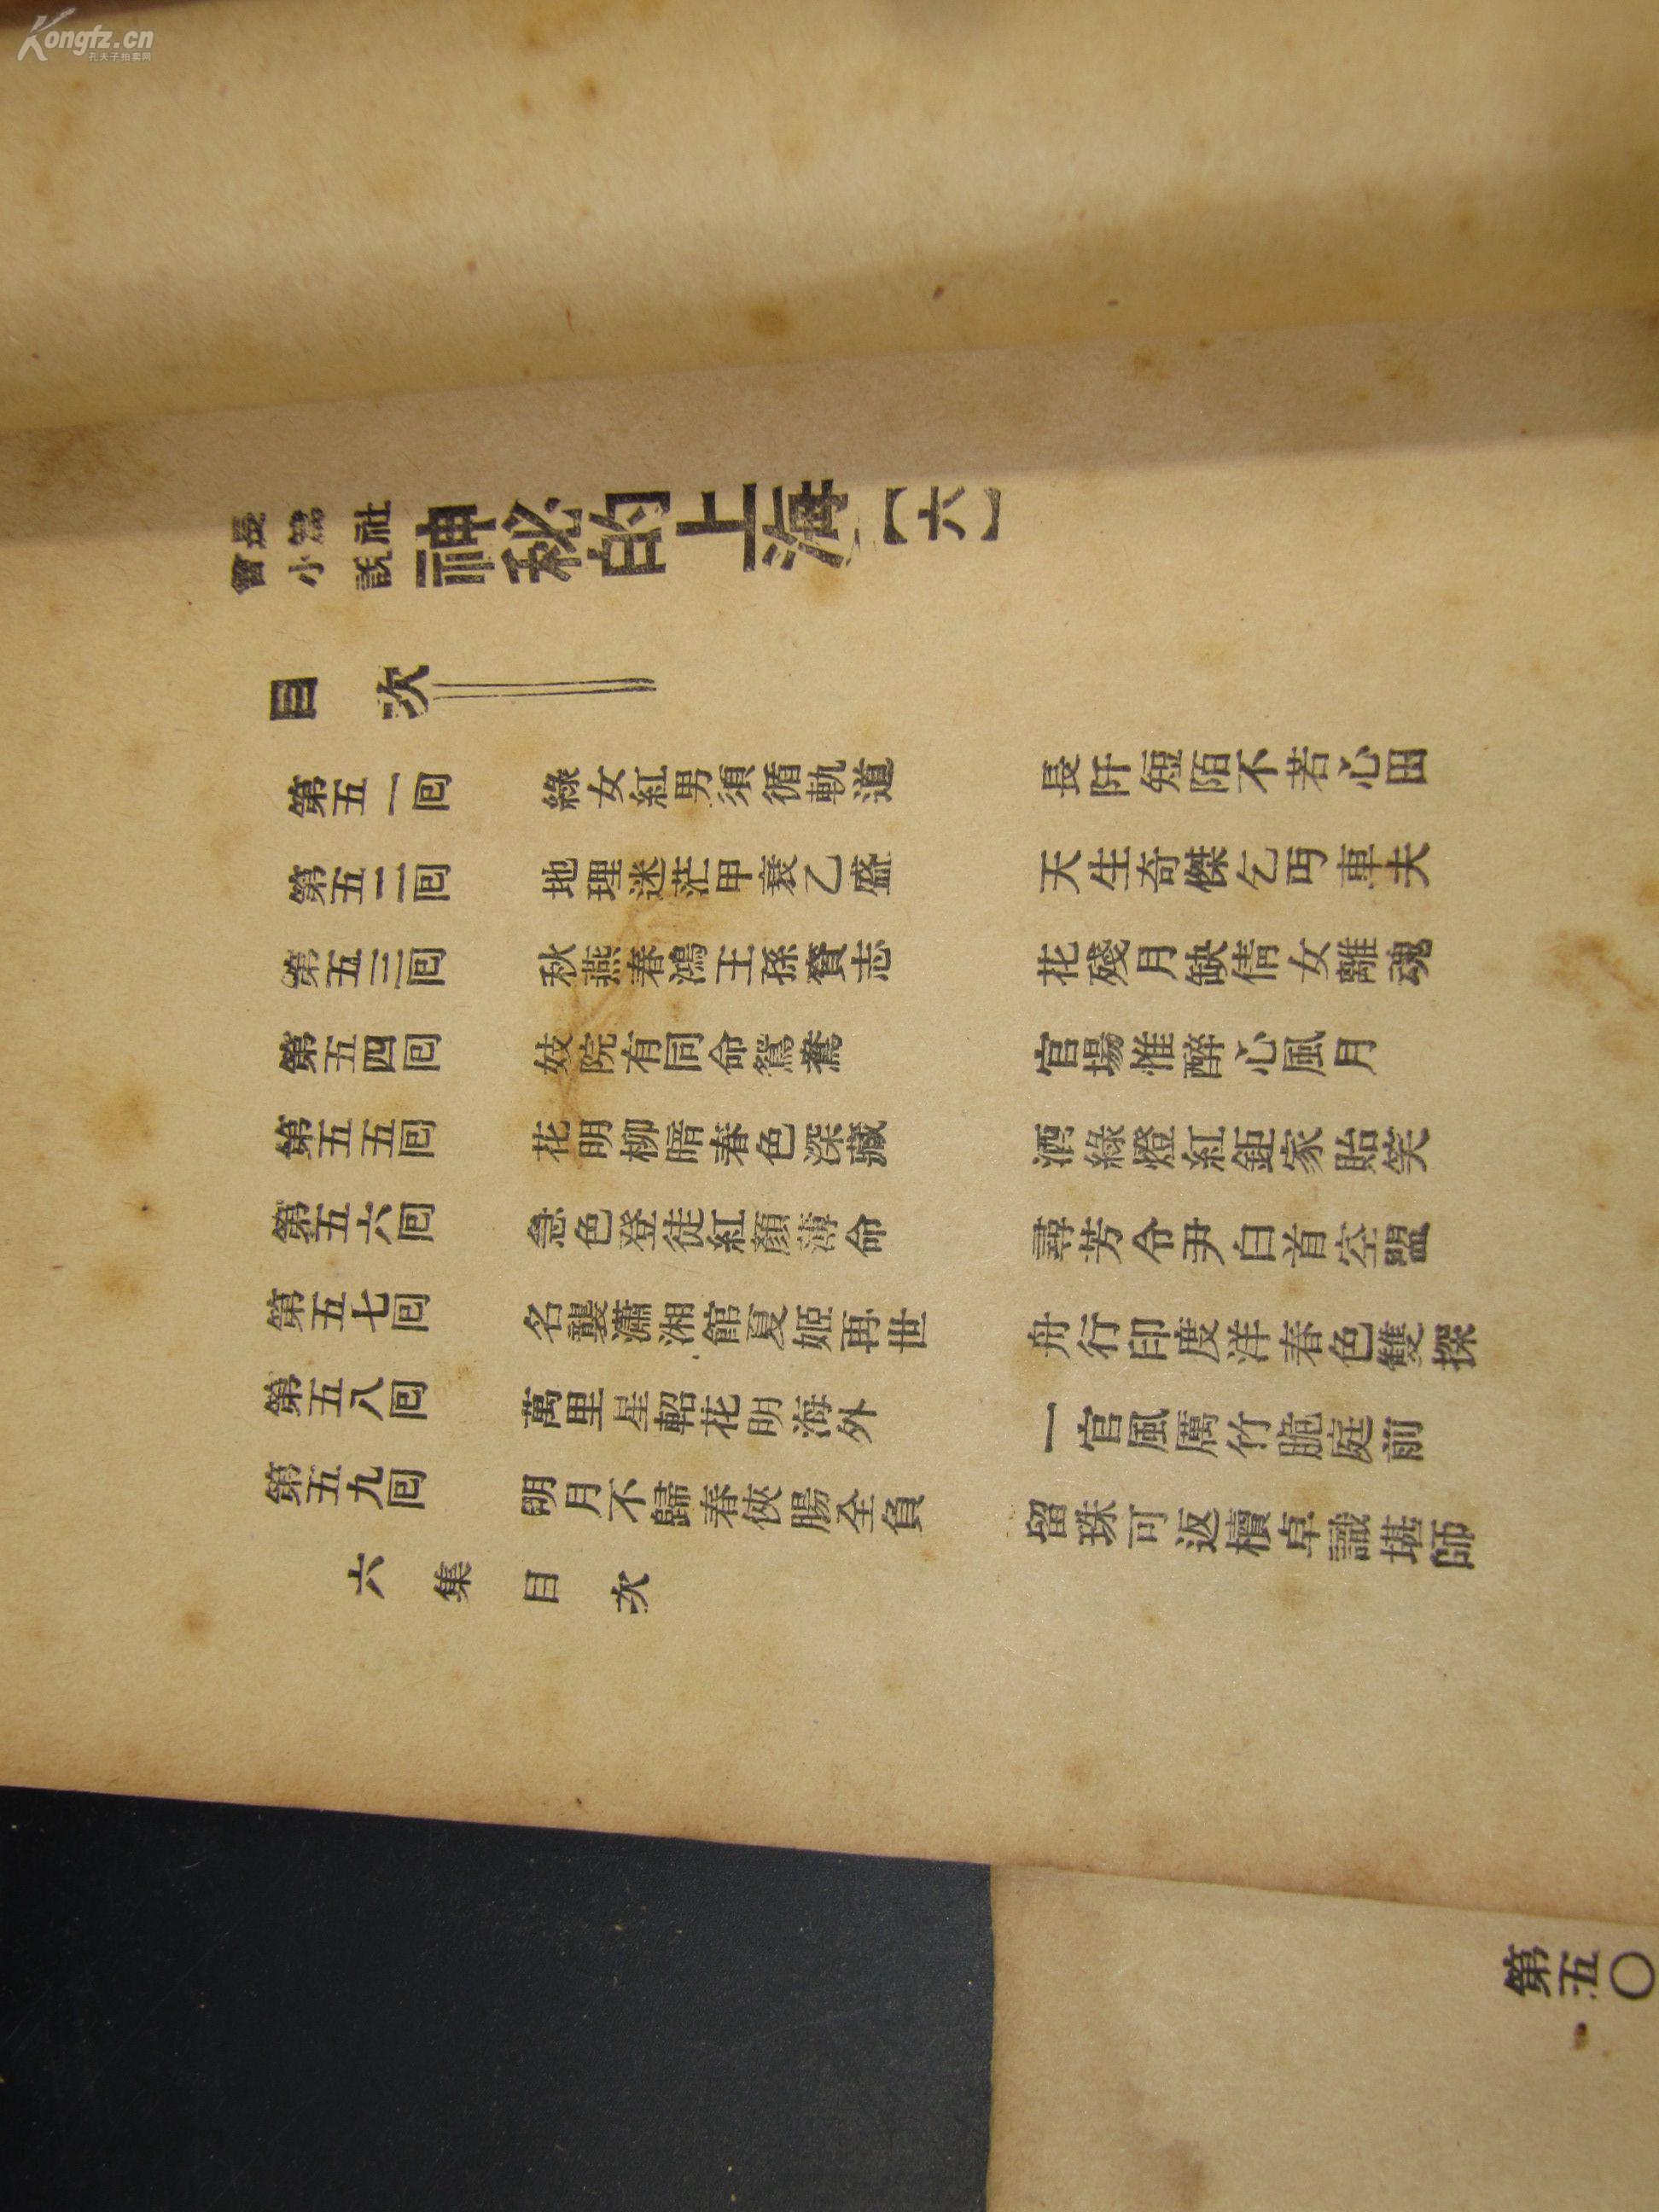 Kongfz.cn
孔夫子拍卖网
長篇社會小說
神秘的上海【六】
目次
第五一回 綠女紅男須循軌道 長阡短陌不若心田
第五二回 地理迷茫甲衰乙盛 天生奇傑乞丐車夫
第五三回 秋燕春鴻王孫賫志 花殘月缺倩女離魂
第五四回 妓院有同命鴛鴦 官場惟醉心風月
第五五回 花明柳暗春色深藏 酒綠燈紅鉅家貽笑
第五六回 急色登徒紅顏薄命 尋芳令尹白首空盟
第五七回 名襲瀟湘館夏姬再世 舟行印度洋春色雙探
第五八回 萬里星軺花明海外 一官風厲竹脆庭前
第五九回 明月不歸春俠腸全負 留珠可返櫝卓識堪師
六集目次
第五〇